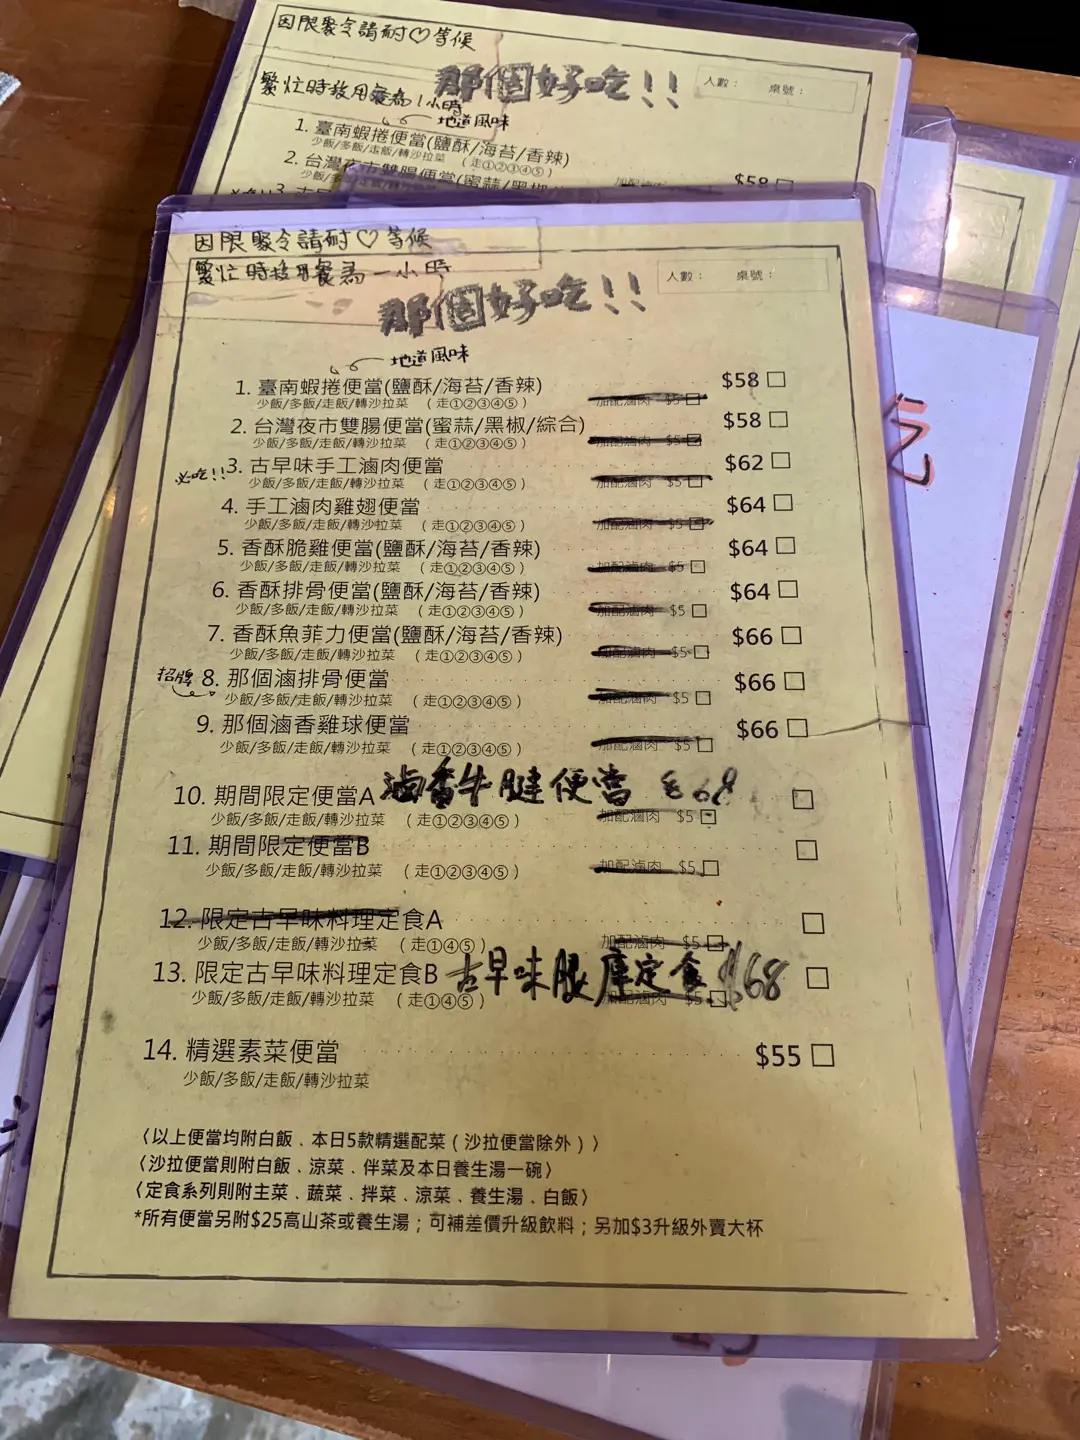 因限聚令請耐♡等候
繁忙時段用餐為1小時
那個好吃!!
人數： 桌號：
地道風味
1. 臺南蝦捲便當(鹽酥/海苔/香辣)
少飯/多飯/走飯/轉沙拉菜 (走①②③④⑤)
2. 台灣夜市雙腸便當(蜜蒜/黑椒
加配滷肉 $58 □
因限聚令請耐♡等候
繁忙時段用餐為一小時
那個好吃!!
人數： 桌號：
地道風味
1. 臺南蝦捲便當(鹽酥/海苔/香辣) $58 □
少飯/多飯/走飯/轉沙拉菜 (走①②③④⑤) 加配滷肉 $5 □
2. 台灣夜市雙腸便當(蜜蒜/黑椒/綜合) $58 □
少飯/多飯/走飯/轉沙拉菜 (走①②③④⑤) 加配滷肉 $5 □
必吃!! 3. 古早味手工滷肉便當 $62 □
少飯/多飯/走飯/轉沙拉菜 (走①②③④⑤) 加配滷肉 $5 □
4. 手工滷肉雞翅便當 $64 □
少飯/多飯/走飯/轉沙拉菜 (走①②③④⑤) 加配滷肉 $5 □
5. 香酥脆雞便當(鹽酥/海苔/香辣) $64 □
少飯/多飯/走飯/轉沙拉菜 (走①②③④⑤) 加配滷肉 $5 □
6. 香酥排骨便當(鹽酥/海苔/香辣) $64 □
少飯/多飯/走飯/轉沙拉菜 (走①②③④⑤) 加配滷肉 $5 □
7. 香酥魚菲力便當(鹽酥/海苔/香辣) $66 □
少飯/多飯/走飯/轉沙拉菜 (走①②③④⑤) 加配滷肉 $5 □
招牌 8. 那個滷排骨便當 $66 □
少飯/多飯/走飯/轉沙拉菜 (走①②③④⑤) 加配滷肉 $5 □
9. 那個滷香雞球便當 $66 □
少飯/多飯/走飯/轉沙拉菜 (走①②③④⑤) 加配滷肉 $5 □
10. 期間限定便當A 滷香牛腱便當 $68 □
少飯/多飯/走飯/轉沙拉菜 (走①②③④⑤) 加配滷肉 $5 □
11. 期間限定便當B □
少飯/多飯/走飯/轉沙拉菜 (走①②③④⑤) 加配滷肉 $5 □
12. 限定古早味料理定食A □
少飯/多飯/走飯/轉沙拉菜 (走①④⑤) 加配滷肉 $5 □
13. 限定古早味料理定食B 古早味眼庫定食 $68 □
少飯/多飯/走飯/轉沙拉菜 (走①④⑤) 加配滷肉 $5 □
14. 精選素菜便當 $55 □
少飯/多飯/走飯/轉沙拉菜
〈以上便當均附白飯﹑本日5款精選配菜（沙拉便當除外）〉
〈沙拉便當則附白飯﹑涼菜﹑伴菜及本日養生湯一碗〉
〈定食系列則附主菜﹑蔬菜﹑拌菜﹑涼菜﹑養生湯﹑白飯〉
*所有便當另附$25高山茶或養生湯；可補差價升級飲料；另加$3升級外賣大杯